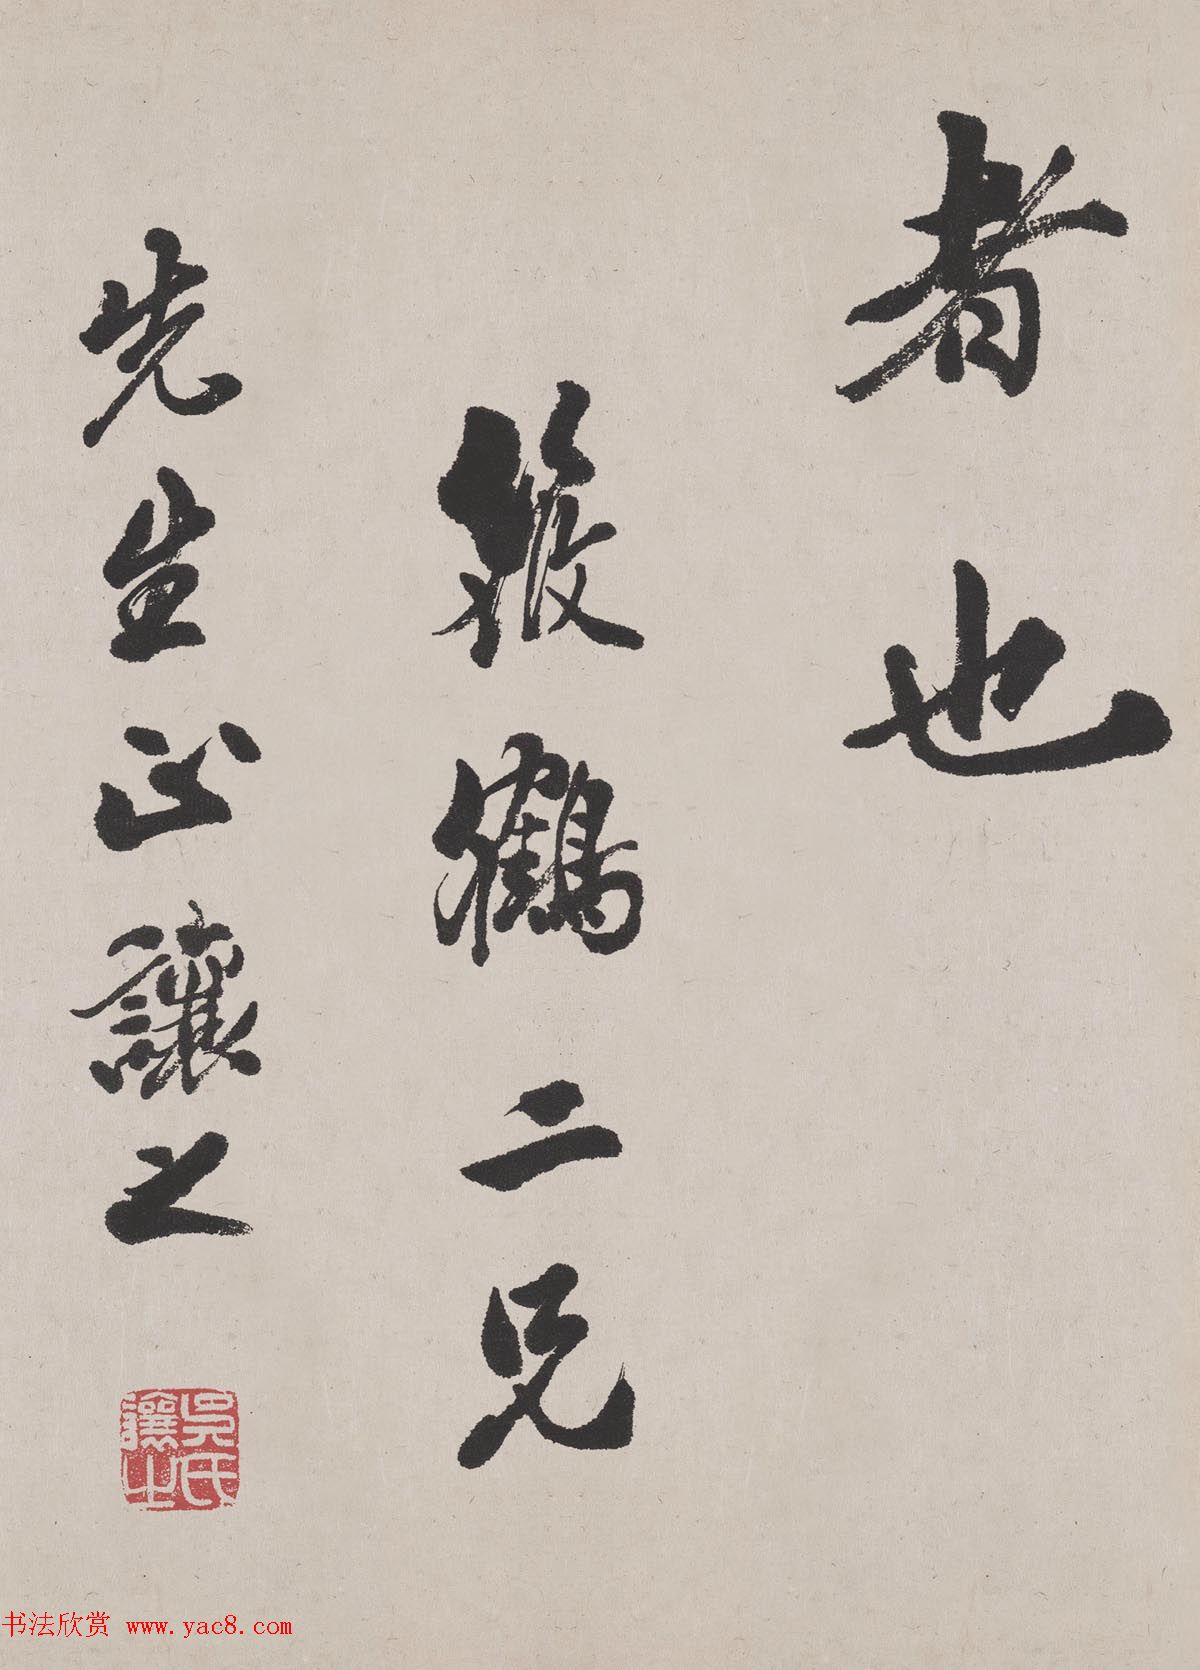 者也
筱鶴二兄
先生正讓之
吳氏讓之
书法欣赏 www.yac8.com